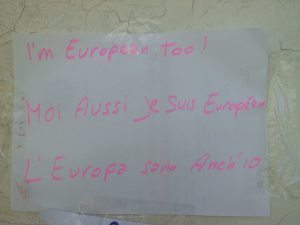 I'm European too!
Moi Aussi je suis Européen
L'Europa sono Anch'io